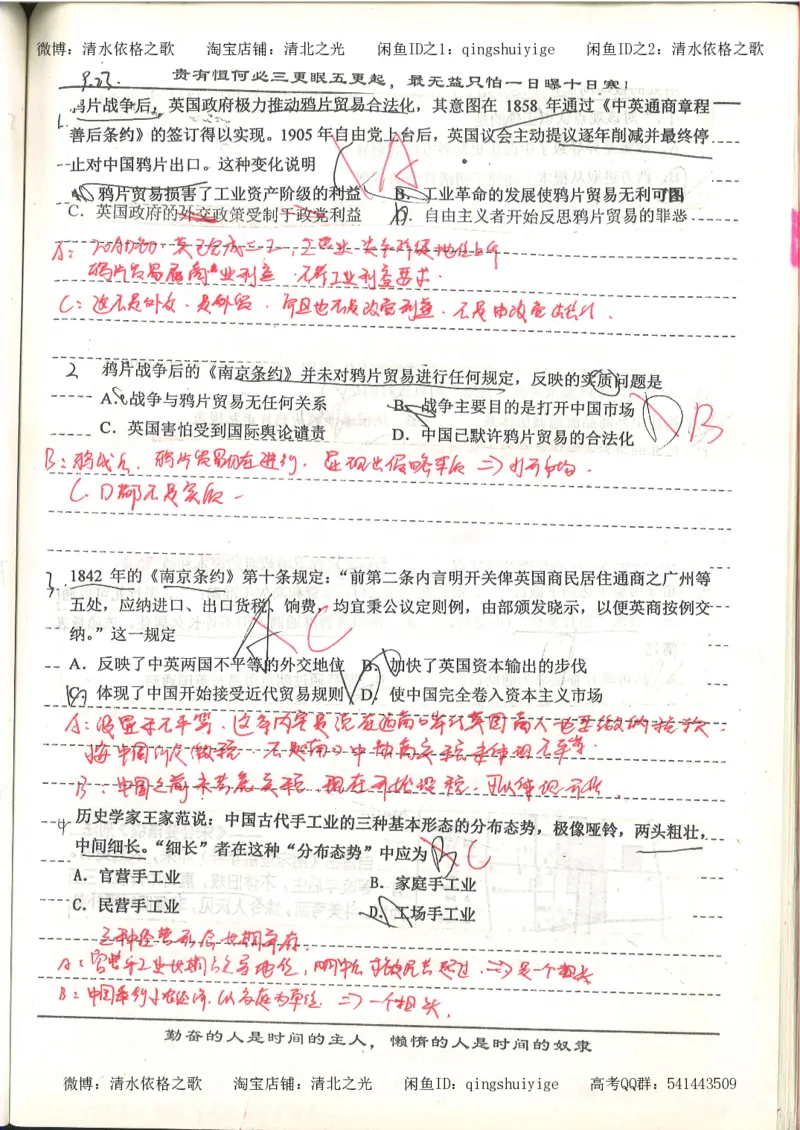 微博：清水依格之歌 淘宝店铺：清北之光 闲鱼ID之1：qingshuiyige 闲鱼ID之2：清水依格之歌
9.23.
贵有恒何必三更眠五更起，最无益只怕一日曝十日寒！
1. 鸦片战争后，英国政府极力推动鸦片贸易合法化，其意图在 1858 年通过《中英通商章程
善后条约》的签订得以实现。1905 年自由党上台后，英国议会主动提议逐年削减并最终停
止对中国鸦片出口。这种变化说明
A. 鸦片贸易损害了工业资产阶级的利益 B. 工业革命的发展使鸦片贸易无利可图
C. 英国政府的外交政策受制于政党利益 D. 自由主义者开始反思鸦片贸易的罪恶
A
A：
鸦片贸易属商业利益 不符工业利益要求.
C：这不是外交. 是外贸.
2 鸦片战争后的《南京条约》并未对鸦片贸易进行任何规定，反映的实质问题是
A. 战争与鸦片贸易无任何关系 B. 战争主要目的是打开中国市场
C. 英国害怕受到国际舆论谴责 D. 中国已默许鸦片贸易的合法化
B
B：鸦战后. 鸦片贸易仍在进行.
C. D都不是实质
3. 1842 年的《南京条约》第十条规定：“前第二条内言明开关俾英国商民居住通商之广州等
五处，应纳进口、出口货税、饷费，均宜秉公议定则例，由部颁发晓示，以便英商按例交
纳。”这一规定
C
A. 反映了中英两国不平等的外交地位 B. 加快了英国资本输出的步伐
C. 体现了中国开始接受近代贸易规则 D. 使中国完全卷入资本主义市场
A：
B：中国之前未
4 历史学家王家范说：中国古代手工业的三种基本形态的分布态势，极像哑铃，两头粗壮，
中间细长。“细长”者在这种“分布态势”中应为
B C
A. 官营手工业 B. 家庭手工业
C. 民营手工业 D. 工场手工业
三种经营形态长期并存.
A：官营手工业长期占主导地位，明中后被民营超过. ⇒ 是一个粗头
B：中国奉行小农经济. 以家庭为单位 ⇒ 一个粗头.
勤奋的人是时间的主人，懒惰的人是时间的奴隶
微博：清水依格之歌 淘宝店铺：清北之光 闲鱼ID：qingshuiyige 高考QQ群：541443509